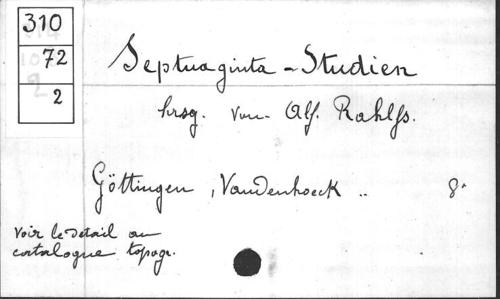 310
72
2
Septuaginta - Studien
hrsg. von Alf. Rahlfs.
Göttingen, Vandenhoeck .. 8°
Voir le détail au
catalogue topogr.